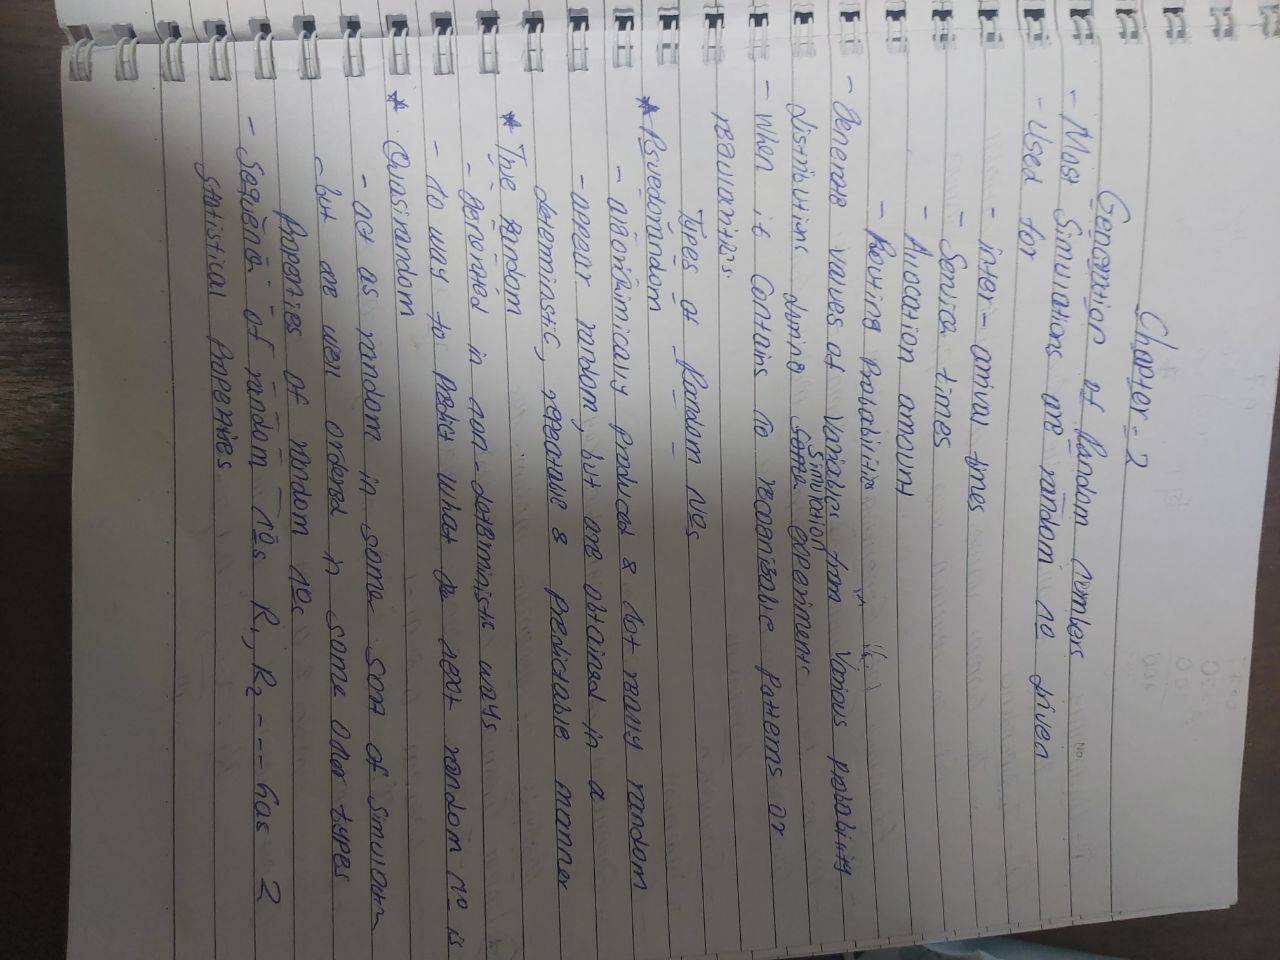 Chapter - 2
Generation of Random numbers
- Most Simulations are random no driven
- Used for
- inter - arrival times
- Service times
- Allocation amount
- Routing Probabilities
- Generate values of Variables from Various probability
simulation
distributions during some experiments
- When it Contains no recognizable Patterns or
regularities.
Types of Random Nos
* Psuedorandom
- algorithmically produced & not really random
- appear random, but are obtained in a
deterministic, repeatable & Predictable manner
* True Random
- generated in non - deterministic ways
- no way to Predict what next random no is
* Quasirandom
- act as random in some sort of simulation
- but are well ordered in some other types
Properties of random nos
- Sequence of random nos R1, R2 --- has 2
statistical Properties